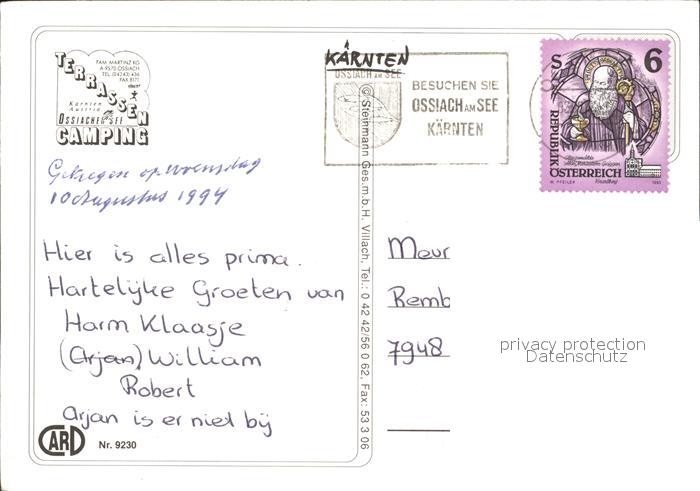 FAM. MARTINZ KG
A-9570 OSSIACH
TEL. (04243) 436
FAX 8171
TERRASSEN
Kärnten
Austria
OSSIACHER SEE
CAMPING
KÄRNTEN
OSSIACH AM SEE
BESUCHEN SIE
OSSIACH AM SEE
KÄRNTEN
S 6
REPUBLIK
ÖSTERREICH
W. PFEILER
1993
Gekregen op woensdag
10 Augustus 1994
Hier is alles prima.
Hartelijke Groeten van
Harm Klaasje
(Arjan) William
Robert
Arjan is er niet bij
CARD
Nr. 9230
© Steinmann Ges.m.b.H. Villach, Tel.: 0 42 42/56 0 62, Fax: 53 3 06
Meur
Remb
7948
privacy protection
Datenschutz